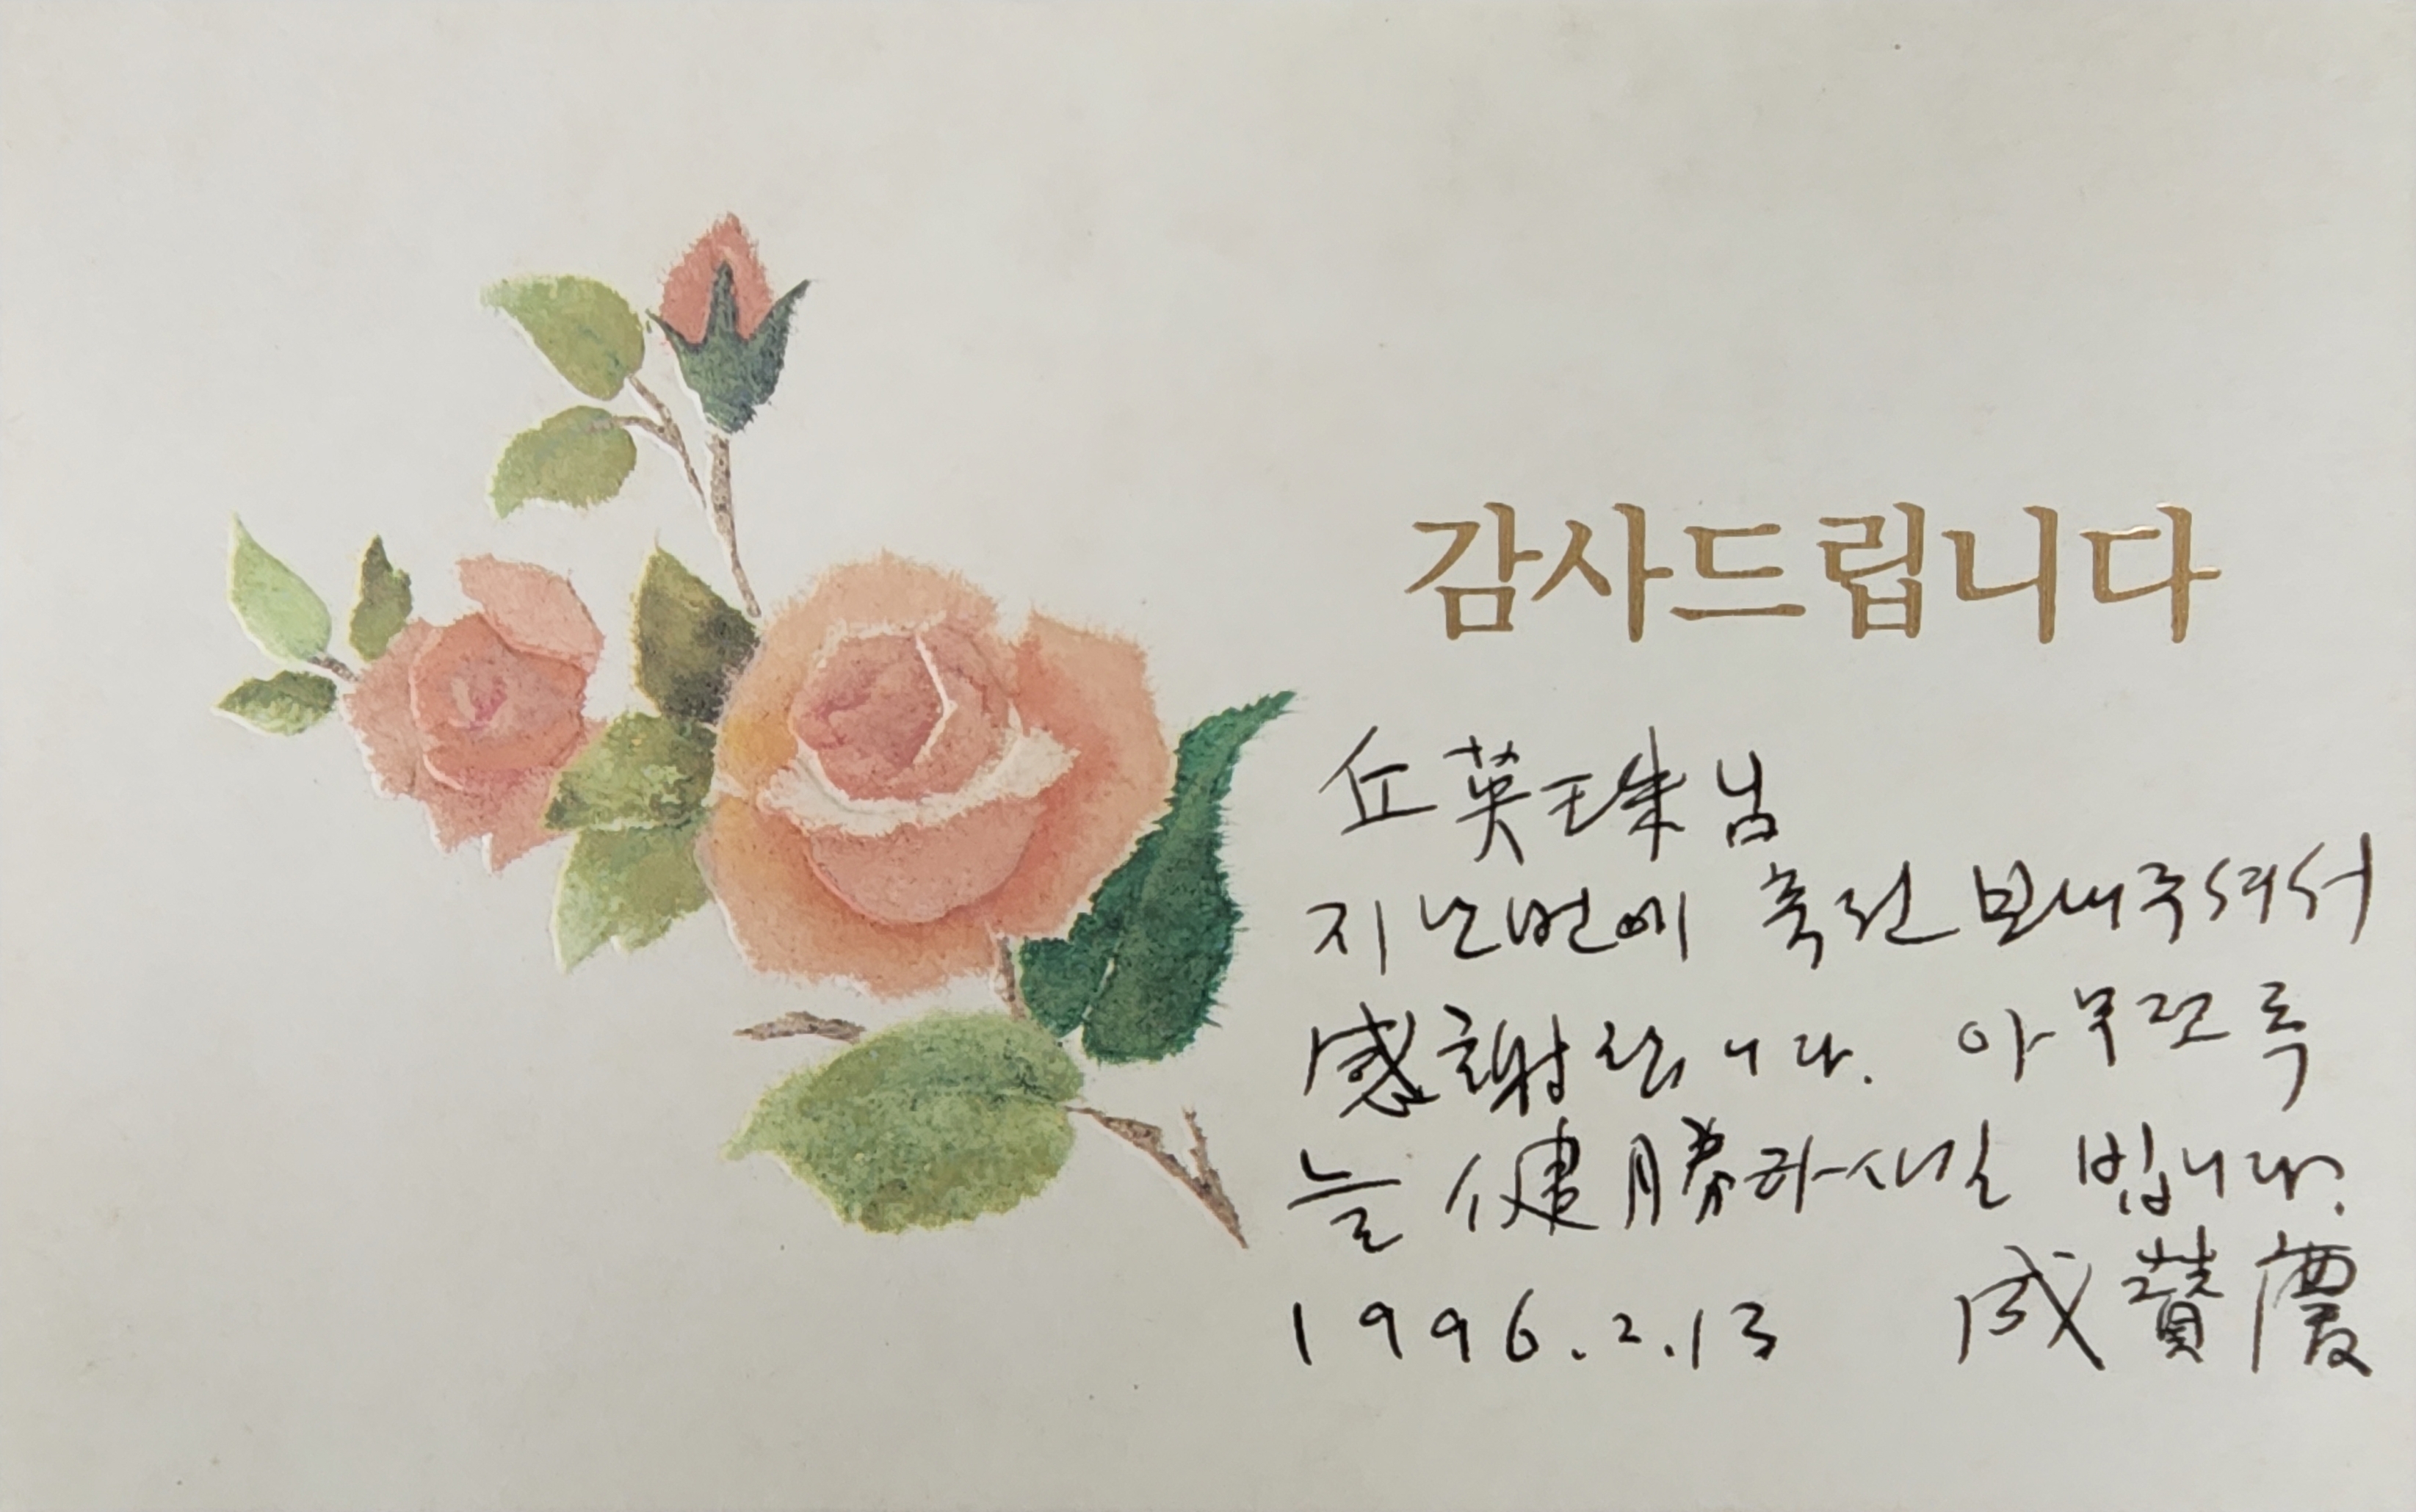 감사드립니다
丘英珠님
지난번에 축전 보내주셔서
感謝합니다. 아무쪼록
늘 健勝하시길 빕니다.
1996.2.13 成贊慶